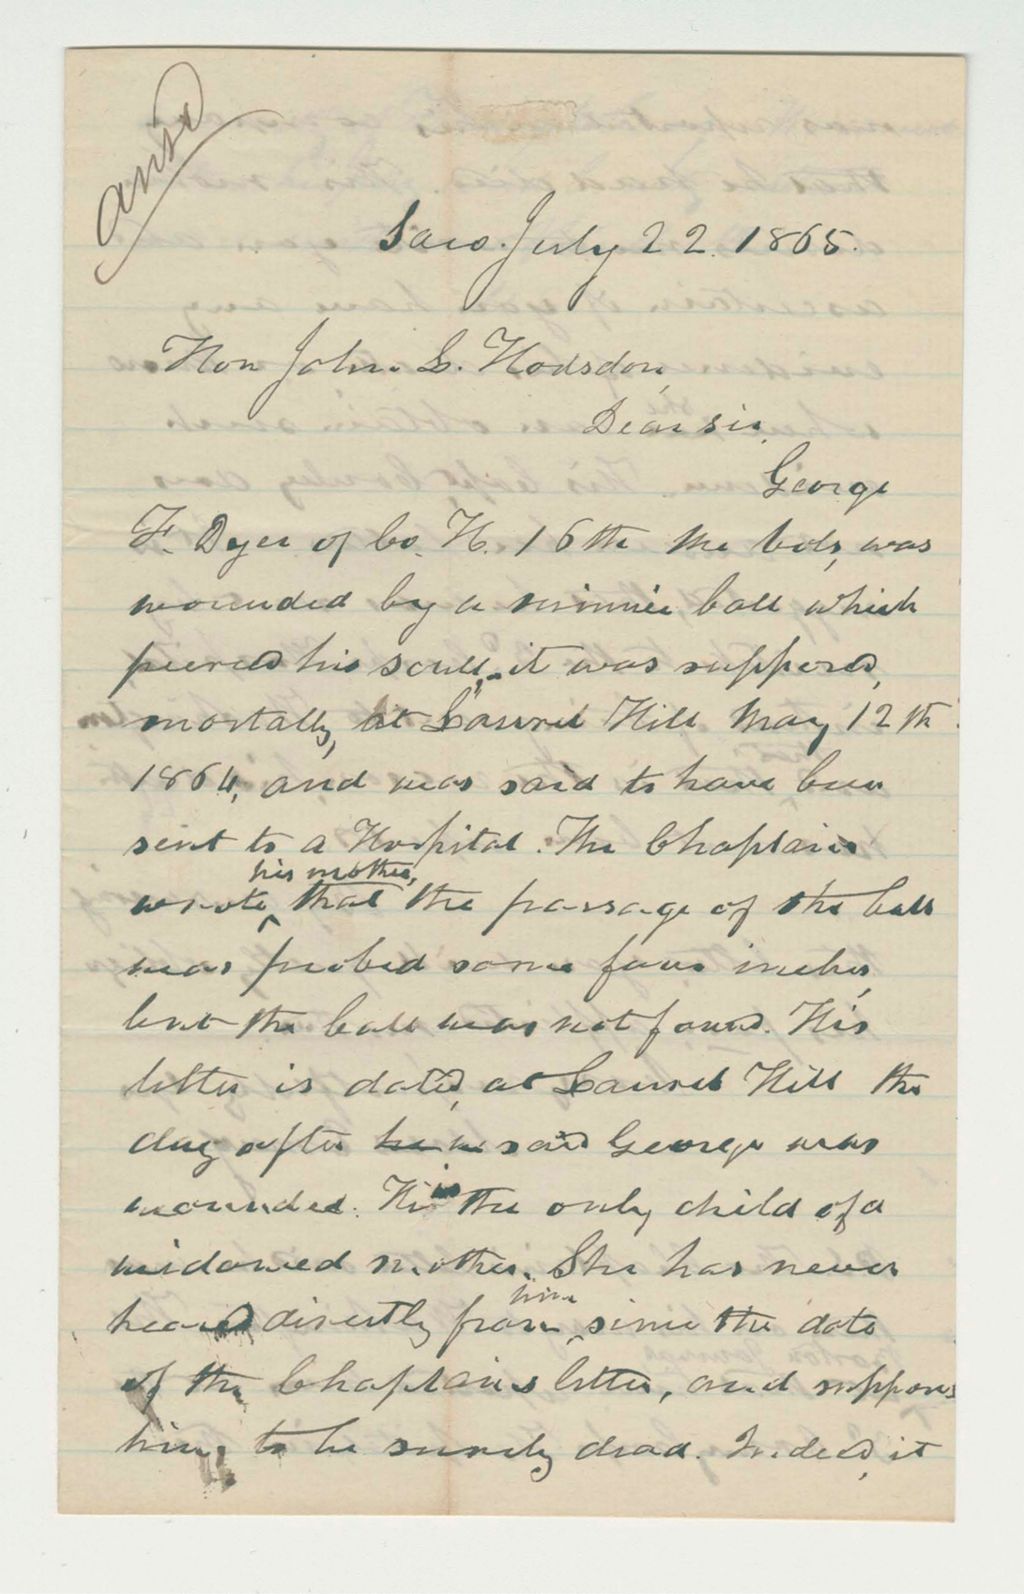 ansd
Saco. July 22. 1865.
Hon John L. Hodsdon,
Dear sir,
George
F. Dyer of Co. H. 16th Me Vols, was
wounded by a minnie ball which
pierced his scull, - it was supposed,
mortally, at Laurel Hill May 12th
1864, and was said to have been
sent to a Hospital. The Chaplain
his mother,
wrote ^ that the passage of the ball
was probed some four inches,
but the ball was not found. His
letter is dated, at Laurel Hill the
day after said George was
wounded. He is the only child of a
widowed mother. She has never
him
heard directly from ^ since the date
of the Chaplains letter, and supposes
him, to be surely dead. Indeed, it